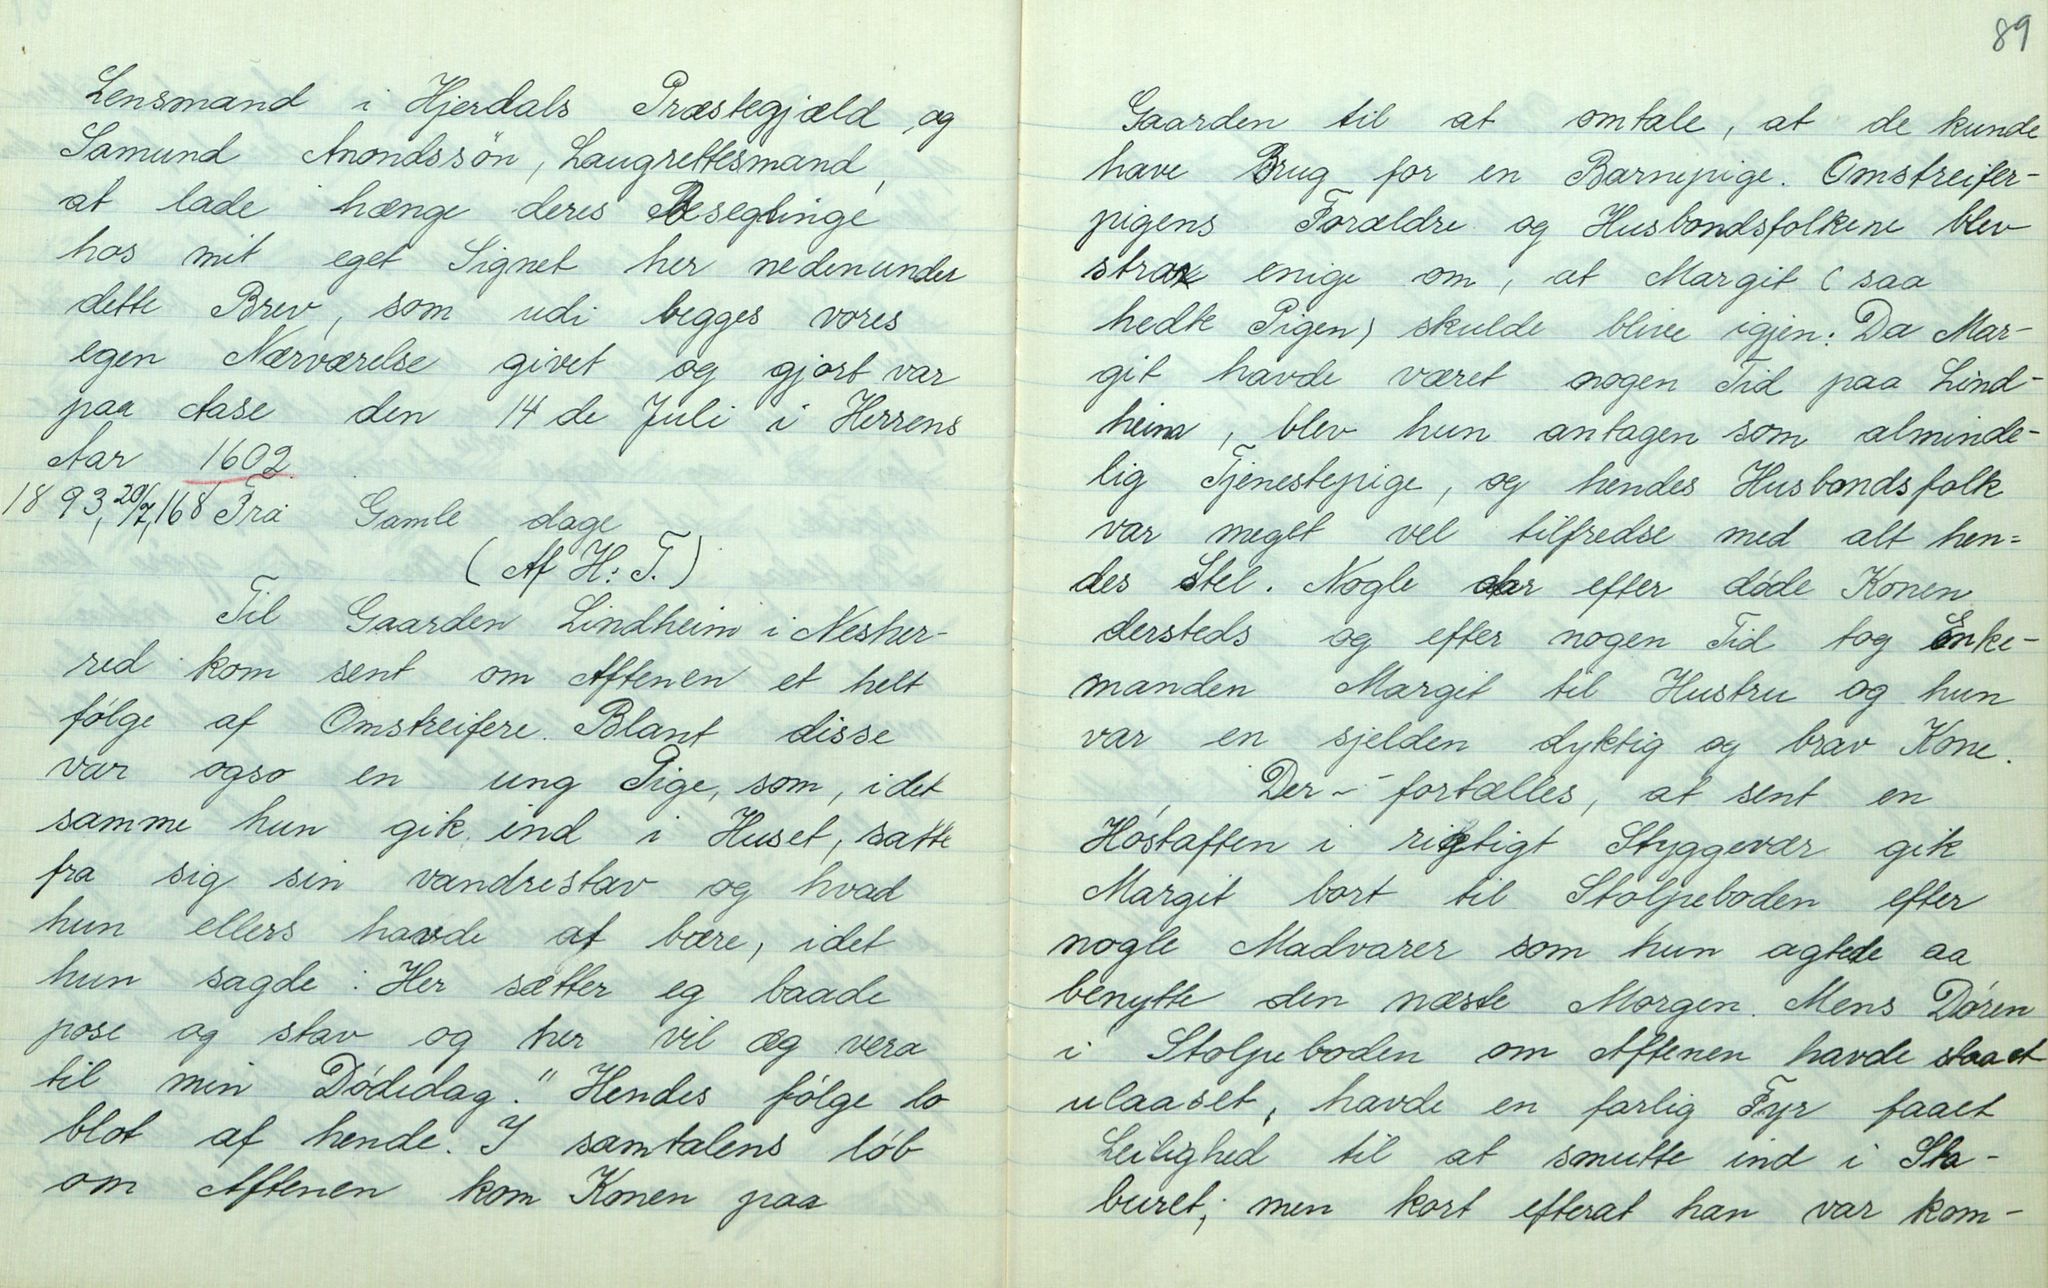 Lensmand i Hjerdals Præstegjæld og
Samund Anondssön, Laugrettesmand,
at lade hænge deres Beseglinge
hos mit eget Signet her nedenunder
dette Brev, som udi begges vores
egen Nærværelse givet og gjort var
paa Aase den 14 de Juli i Herrens
Aar 1602.
1893, 20/7, 168 Fra Gamle dage
(Af H: T.)
Til Gaarden Lindheim i Nesher-
red kom sent om Aftenen et helt
følge af Omstreifere. Blant disse
var ogso en ung Pige, som, idet
samme hun gik ind i Huset, satte
fra sig sin vandrestav og hvad
hun ellers havde af bære, idet
hun sagde: Her sætter eg baade
pose og stav og her vil æg vera
til min Dødedag." Hendes følge lo
blot af hende. I samtalens løb
om Aftenen kom Konen paa
89
Gaarden til at omtale, at de kunde
have Brug for en Barnepige. Omstreifer-
pigens Forældre og Husbondsfolkene blev
strax enige om, at Margit (saa
hedte Pigen) skulde blive igjen: Da Mar-
git havde været nogen Tid paa Lind-
heim, blev hun antagen som alminde-
lig Tjenestepige, og hendes Husbondsfolk
var meget vel tilfredse med alt hen=
des Stel. Nogle aar efter døde Konen
dersteds og efter nogen Tid tog Enke-
manden Margit til Hustru og hun
var en sjelden dyktig og brav Kone.
Der - fortælles, at sent en
Høstaften i rigtigt Styggevær gik
Margit bort til Stolpeboden efter
nogle Madvarer som hun agtede aa
benytte den næste Morgen. Mens Døren
i Stolpeboden om Aftenen havde staaet
ulaaset, havde en farlig Fyr faaet
Leilighed til at smutte ind i Sta-
buret; men kort efterat han var kom-